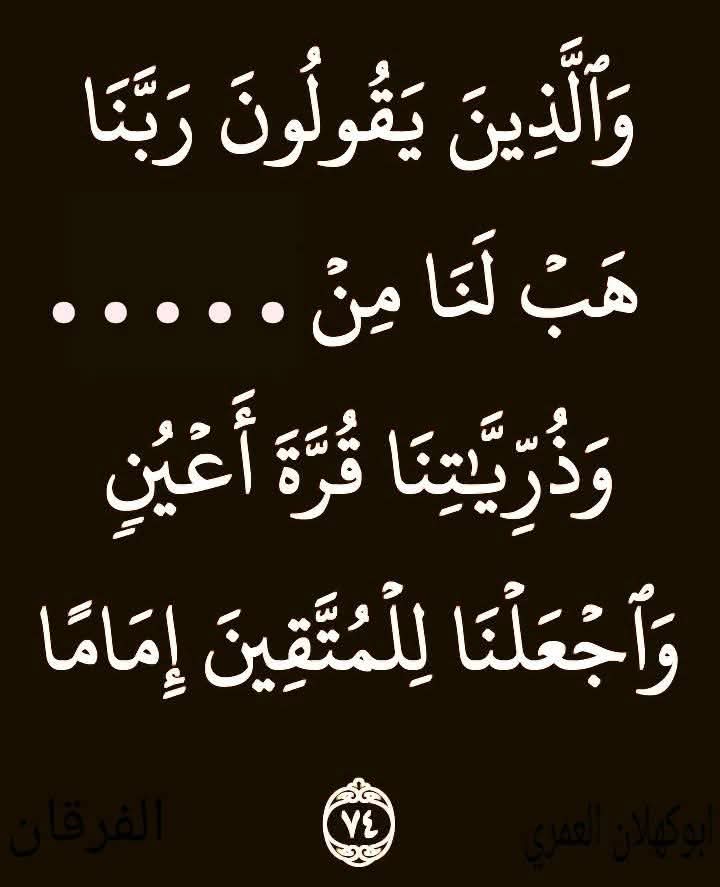 وَٱلَّذِينَ يَقُولُونَ رَبَّنَا
هَبۡ لَنَا مِنۡ . . . . .
وَذُرِّيَّٰتِنَا قُرَّةَ أَعۡيُنٖ
وَٱجۡعَلۡنَا لِلۡمُتَّقِينَ إِمَامًا
٧٤
ابوكهلان العمري
الفرقان